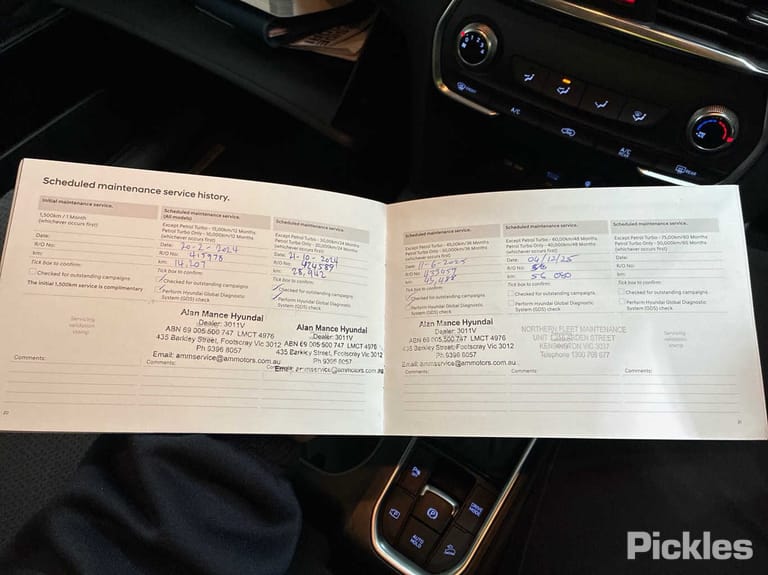 Scheduled maintenance service history.
Initial maintenance service.
1,500km / 1 Month
(whichever occurs first)
Date:
R/O No:
km:
Tick box to confirm:
Checked for outstanding campaigns
The initial 1,500km service is complimentary
Servicing
validation
stamp
Comments:
Scheduled maintenance service.
(All models)
Except Petrol Turbo - 15,000km/12 Months
Petrol Turbo Only - 10,000km/12 Months
(whichever occurs first)
Date: 20-2-2024
R/O No: 415978
km: 14,207
Tick box to confirm:
Checked for outstanding campaigns
Perform Hyundai Global Diagnostic
System (GDS) check
Alan Mance Hyundai
Dealer: 3011V
ABN 69 005 500 747 LMCT 4976
435 Barkley Street, Footscray Vic 3012
Ph 9396 8057
Email: ammservice@ammotors.com.au
Comments:
Scheduled maintenance service.
Except Petrol Turbo - 30,000km/24 Months
Petrol Turbo Only - 20,000km/24 Months
(whichever occurs first)
Date: 21-10-2024
R/O No: 424589
km: 28,442
Tick box to confirm:
Checked for outstanding campaigns
Perform Hyundai Global Diagnostic
System (GDS) check
Alan Mance Hyundai
Dealer: 3011V
ABN 69 005 500 747 LMCT 4976
435 Barkley Street, Footscray Vic 3012
Ph 9396 8057
Email: ammservice@ammotors.com.au
Comments:
20
Scheduled maintenance service.
Except Petrol Turbo - 45,000km/36 Months
Petrol Turbo Only - 30,000km/36 Months
(whichever occurs first)
Date: 11-6-2025
R/O No:
km:
Tick box to confirm:
Checked for outstanding campaigns
Perform Hyundai Global Diagnostic
System (GDS) check
Alan Mance Hyundai
Dealer: 3011V
ABN 69 005 500 747 LMCT 4976
435 Barkley Street, Footscray Vic 3012
Ph 9396 8057
Email: ammservice@ammotors.com.au
Comments:
Scheduled maintenance service.
Except Petrol Turbo - 60,000km/48 Months
Petrol Turbo Only - 40,000km/48 Months
(whichever occurs first)
Date: 04/12/25
R/O No:
km: 56 050
Tick box to confirm:
Checked for outstanding campaigns
Perform Hyundai Global Diagnostic
System (GDS) check
NORTHERN FLEET MAINTENANCE
UNIT
KENSINGTON VIC 3031
Telephone 1300 798 677
Comments:
Scheduled maintenance service.
Except Petrol Turbo - 75,000km/60 Months
Petrol Turbo Only - 50,000km/60 Months
(whichever occurs first)
Date:
R/O No:
km:
Tick box to confirm:
Checked for outstanding campaigns
Perform Hyundai Global Diagnostic
System (GDS) check
Servicing
validation
stamp
Comments:
21
FRONT
A/C
A/C
REAR
REAR
P
DRIVE
MODE
AUTO
HOLD
Pickles